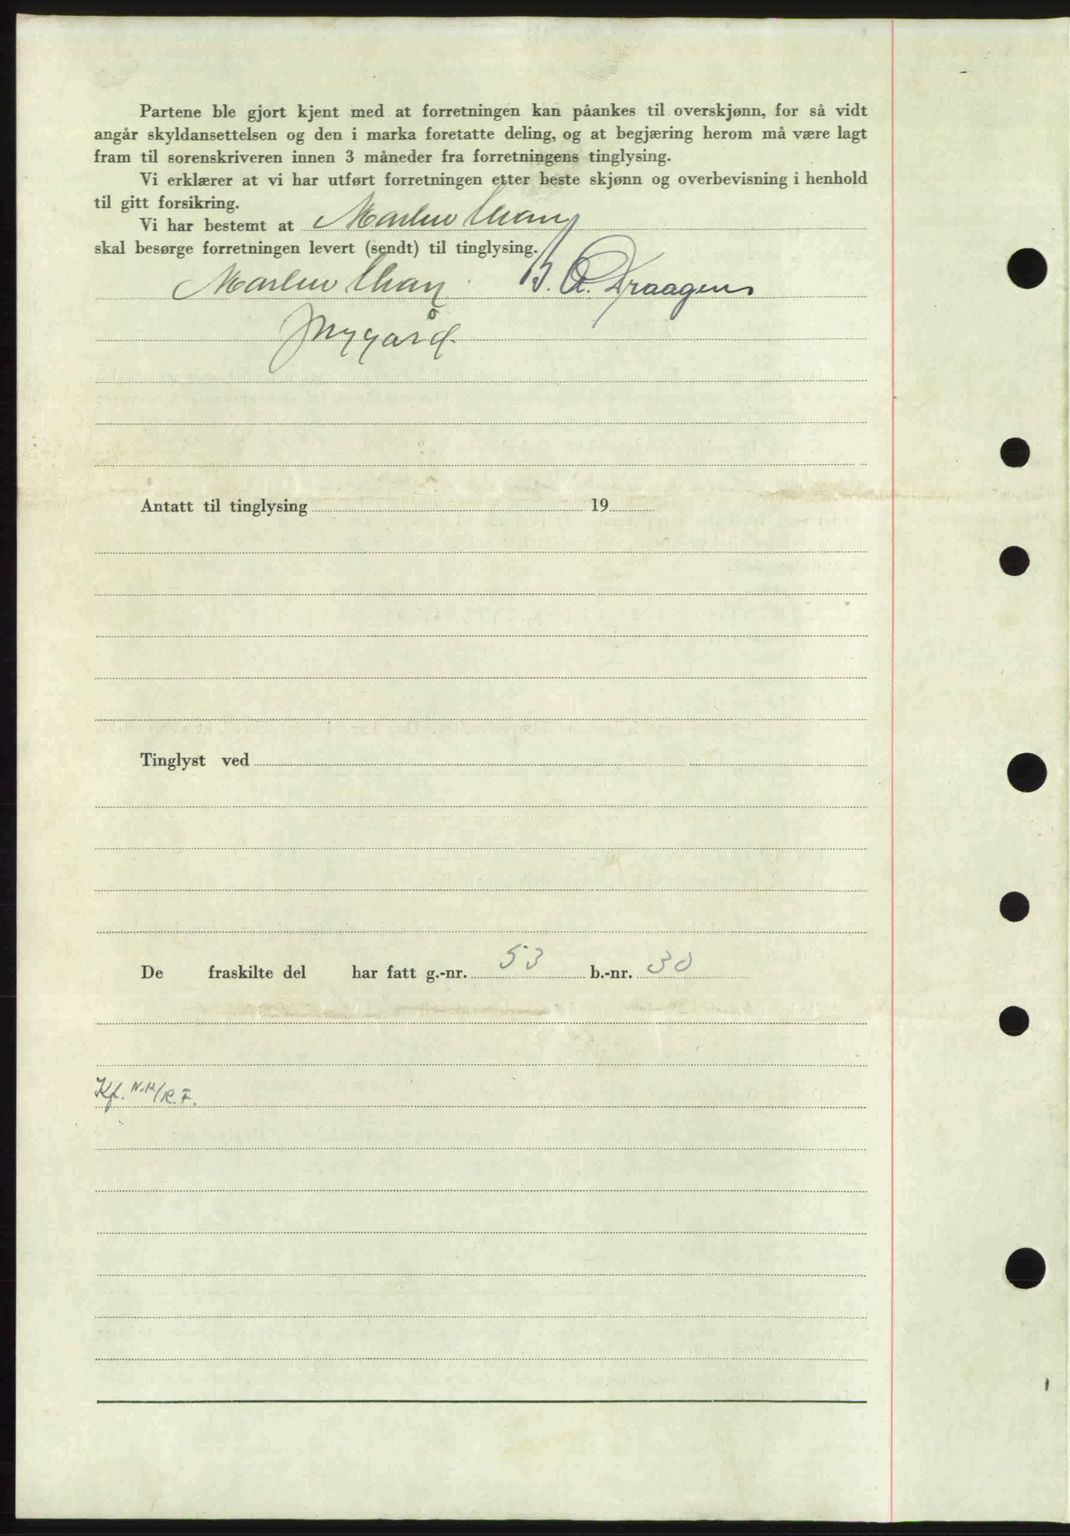 Partene ble gjort kjent med at forretningen kan påankes til overskjønn, for så vidt
angår skyldansettelsen og den i marka foretatte deling, og at begjæring herom må være lagt
fram til sorenskriveren innen 3 måneder fra forretningens tinglysing.
Vi erklærer at vi har utført forretningen etter beste skjønn og overbevisning i henhold
til gitt forsikring.
Vi har bestemt at
skal besørge forretningen levert (sendt) til tinglysing.
Antatt til tinglysing 19
Tinglyst ved
De fraskilte del har fatt g.-nr. 53 b.-nr. 30
Kf. N.H/R.F.